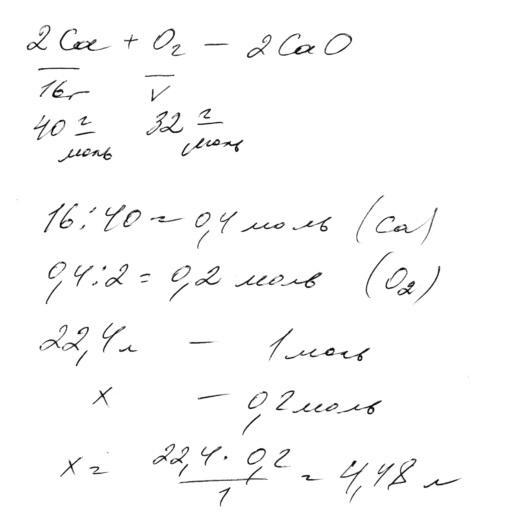 2Ca + O₂ — 2CaO
16г V
40 г/моль 32 г/моль
16:40 = 0,4 моль (Ca)
0,4:2 = 0,2 моль (O₂)
22,4 л — 1 моль
x — 0,2 моль
x = 22,4 · 0,2 / 1 = 4,48 л